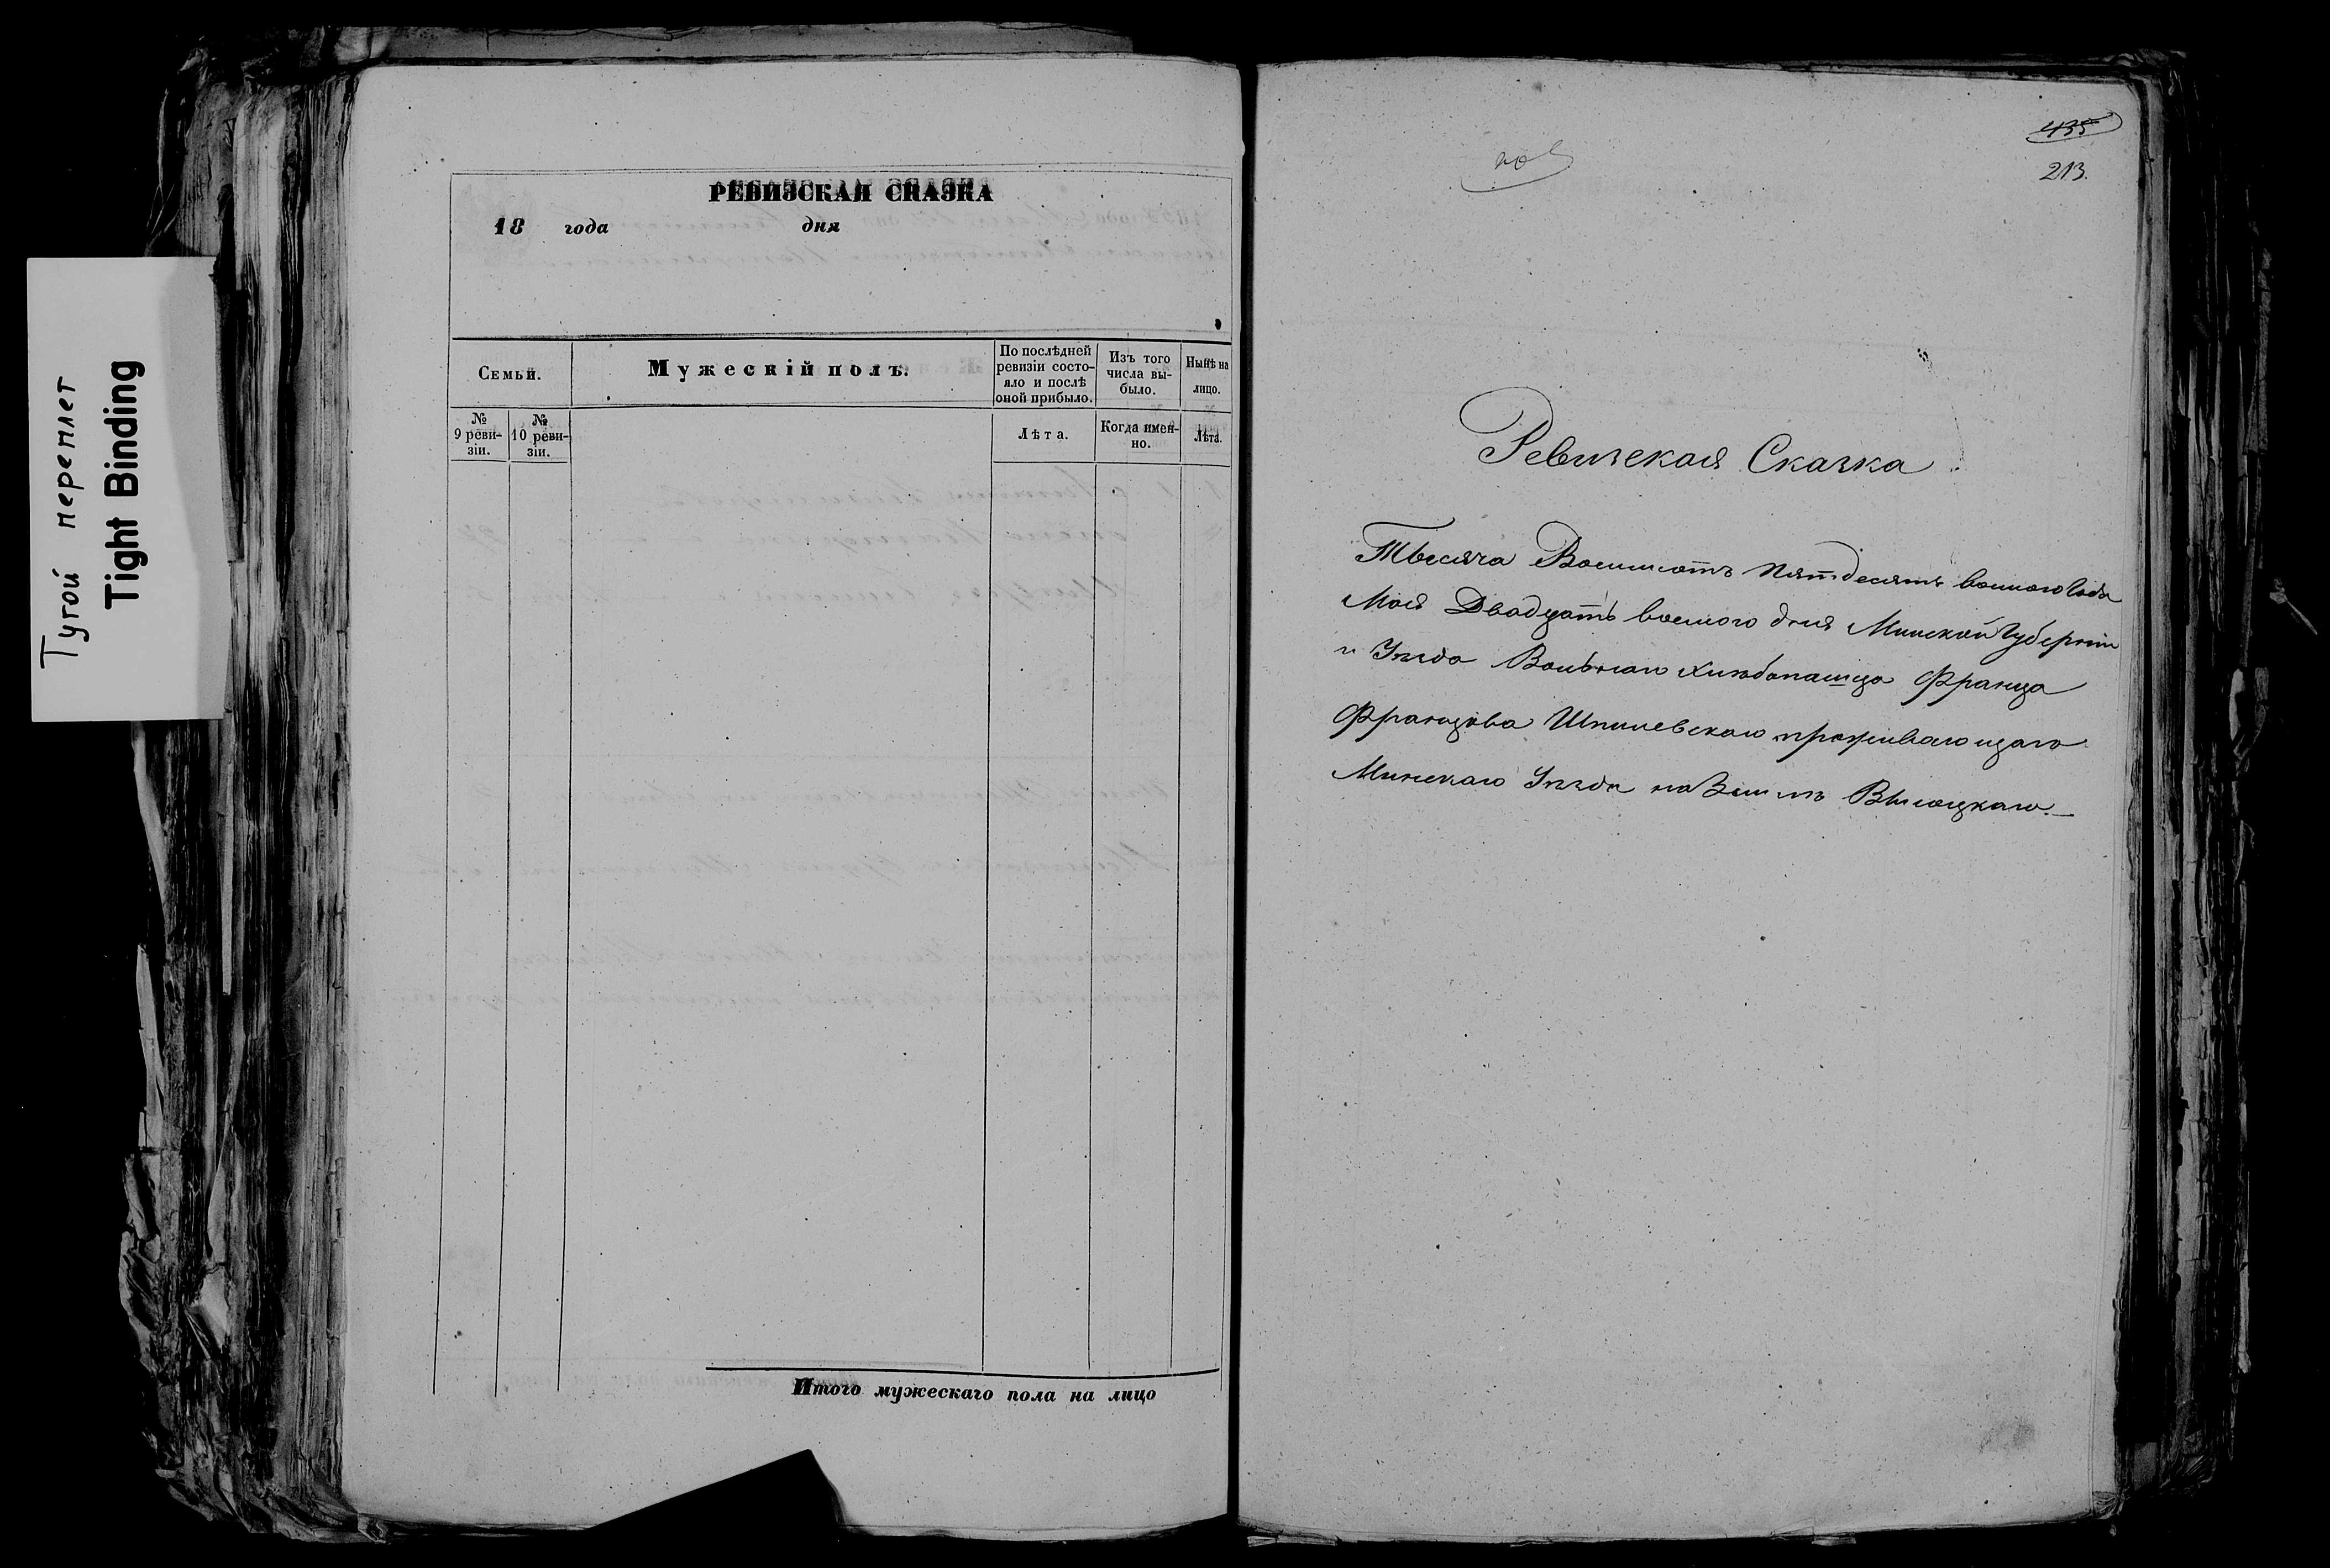 Тугой переплет
Tight Binding
РЕВИЗСКАЯ СКАЗКА
18 года дня
Семьи.
Мужескій полъ.
По послѣдней ревизіи состо-
яло и послѣ
оной прибыло.
Изъ того
числа вы-
было.
Нынѣ на
лицо.
№
9 реви-
зіи.
№
10 реви-
зіи.
Лѣта.
Когда имен-
но.
Лѣта.
Итого мужескаго пола на лицо
435
213.
Ревизская Сказка
Тысяча Восимсотъ пятдесятъ восмого года
Мая Двадцать восмого дня Минской Губерніи
и Уѣзда Вольнаго хлѣбопашца Франца
Францова Шпилевскаго проживающаго
Минскаго Уѣзда на Земли Высоцкаго.